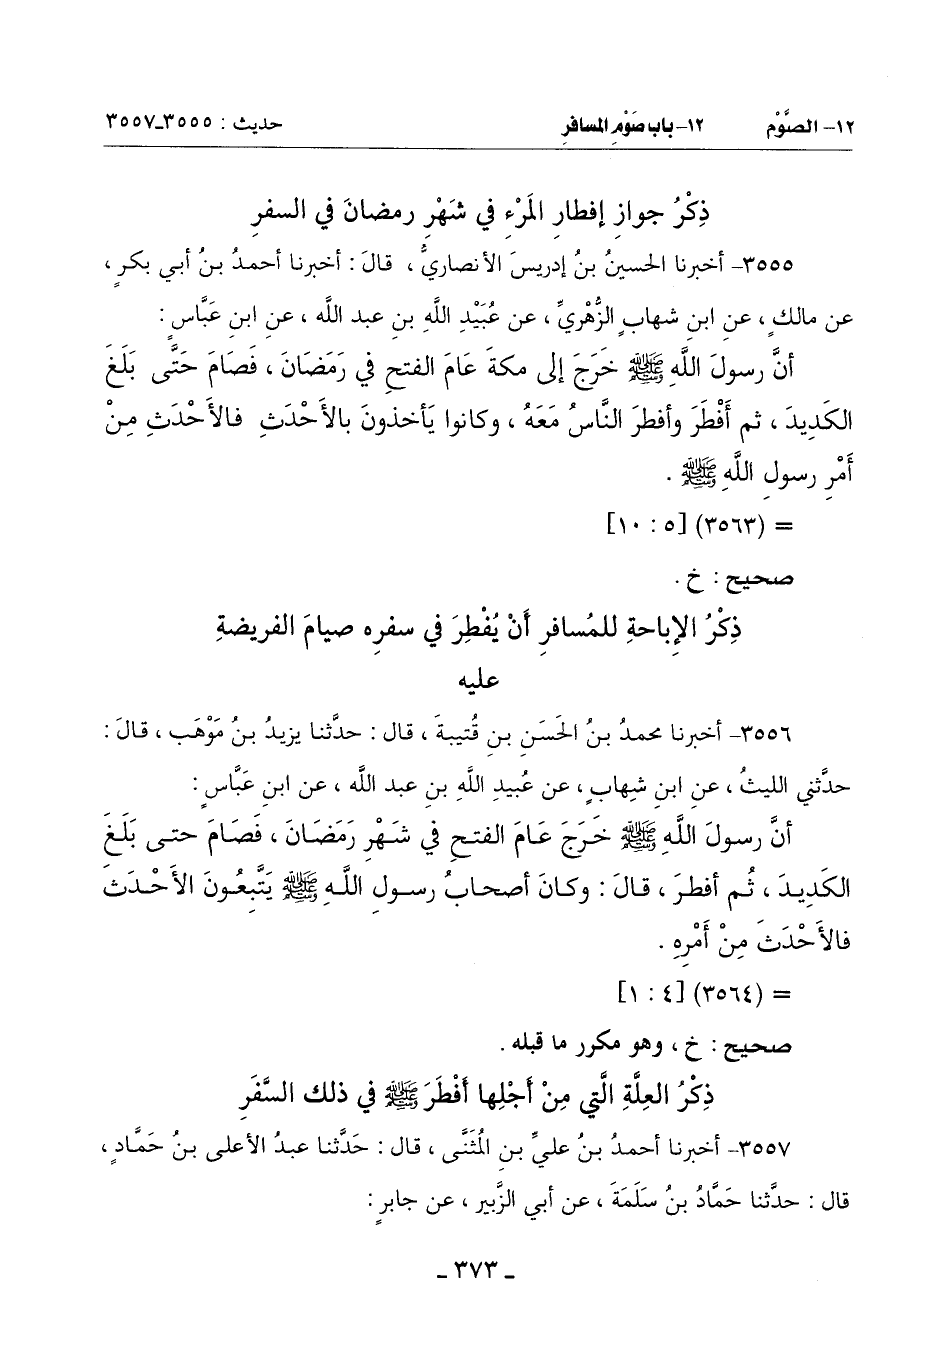 ١٢- الصَّوْم ١٢- باب صَوْمِ المسافرِ حديث : ٣٥٥٥ـ٣٥٥٧
ذِكْرُ جوازِ إفطارِ المَرْءِ في شَهْرِ رمضانَ في السفرِ
٣٥٥٥- أخبرنا الحسينُ بنُ إدريسَ الأنصاريُّ ، قالَ : أخبرنا أحمدُ بنُ أبي بكرٍ ،
عن مالكٍ ، عن ابنِ شهابٍ الزُّهْريِّ ، عن عُبَيْدِ اللَّهِ بنِ عبد اللَّه ، عن ابنِ عَبَّاسٍ :
أنَّ رسولَ اللَّهِ ﷺ خَرَجَ إلى مكةَ عَامَ الفتحِ في رَمَضَانَ ، فَصَامَ حَتَّى بَلَغَ
الكَدِيدَ ، ثم أَفْطَرَ وأفطرَ النَّاسُ مَعَهُ ، وكانوا يَأخذونَ بالأَحْدَثِ فالأَحْدَثِ مِنْ
أَمْرِ رسولِ اللَّهِ ﷺ .
= (٣٥٦٣) [٥ : ١٠]
صحيح : خ .
ذِكْرُ الإباحةِ للمُسافرِ أَنْ يُفْطِرَ في سفرِه صيامَ الفريضةِ
عليه
٣٥٥٦- أخبرنا محمدُ بنُ الحَسَنِ بنِ قُتيبةَ ، قال : حدَّثنا يزيدُ بنُ مَوْهَب ، قالَ :
حدَّثني الليثُ ، عن ابنِ شِهابٍ ، عن عُبيدِ اللَّهِ بنِ عبد اللَّه ، عن ابنِ عَبَّاسٍ :
أنَّ رسولَ اللَّهِ ﷺ خَرَجَ عَامَ الفتحِ في شَهْرِ رَمَضَانَ ، فَصَامَ حتى بَلَغَ
الكَدِيدَ ، ثُم أفطرَ ، قالَ : وكانَ أصحابُ رسولِ اللَّهِ ﷺ يَتَّبِعُونَ الأَحْدَثَ
فالأَحْدَثَ مِنْ أَمْرِهِ .
= (٣٥٦٤) [٤ : ١]
صحيح : خ ، وهو مكرر ما قبله .
ذِكْرُ العِلَّةِ الَّتي مِنْ أَجْلِها أَفْطَرَ ﷺ في ذلك السَّفَرِ
٣٥٥٧- أخبرنا أحمدُ بنُ عليٍّ بنِ المُثَنَّى ، قال : حَدَّثنا عبدُ الأعلى بنُ حَمَّادٍ ،
قال : حدَّثنا حَمَّادُ بنُ سَلَمَةَ ، عن أبي الزَّبيرِ ، عن جابرٍ :
ـ ٣٧٣ ـ